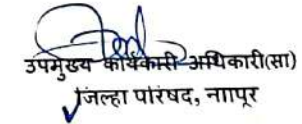 उपमुख्य कार्यकारी अधिकारी(सा)
जिल्हा परिषद, नागपूर